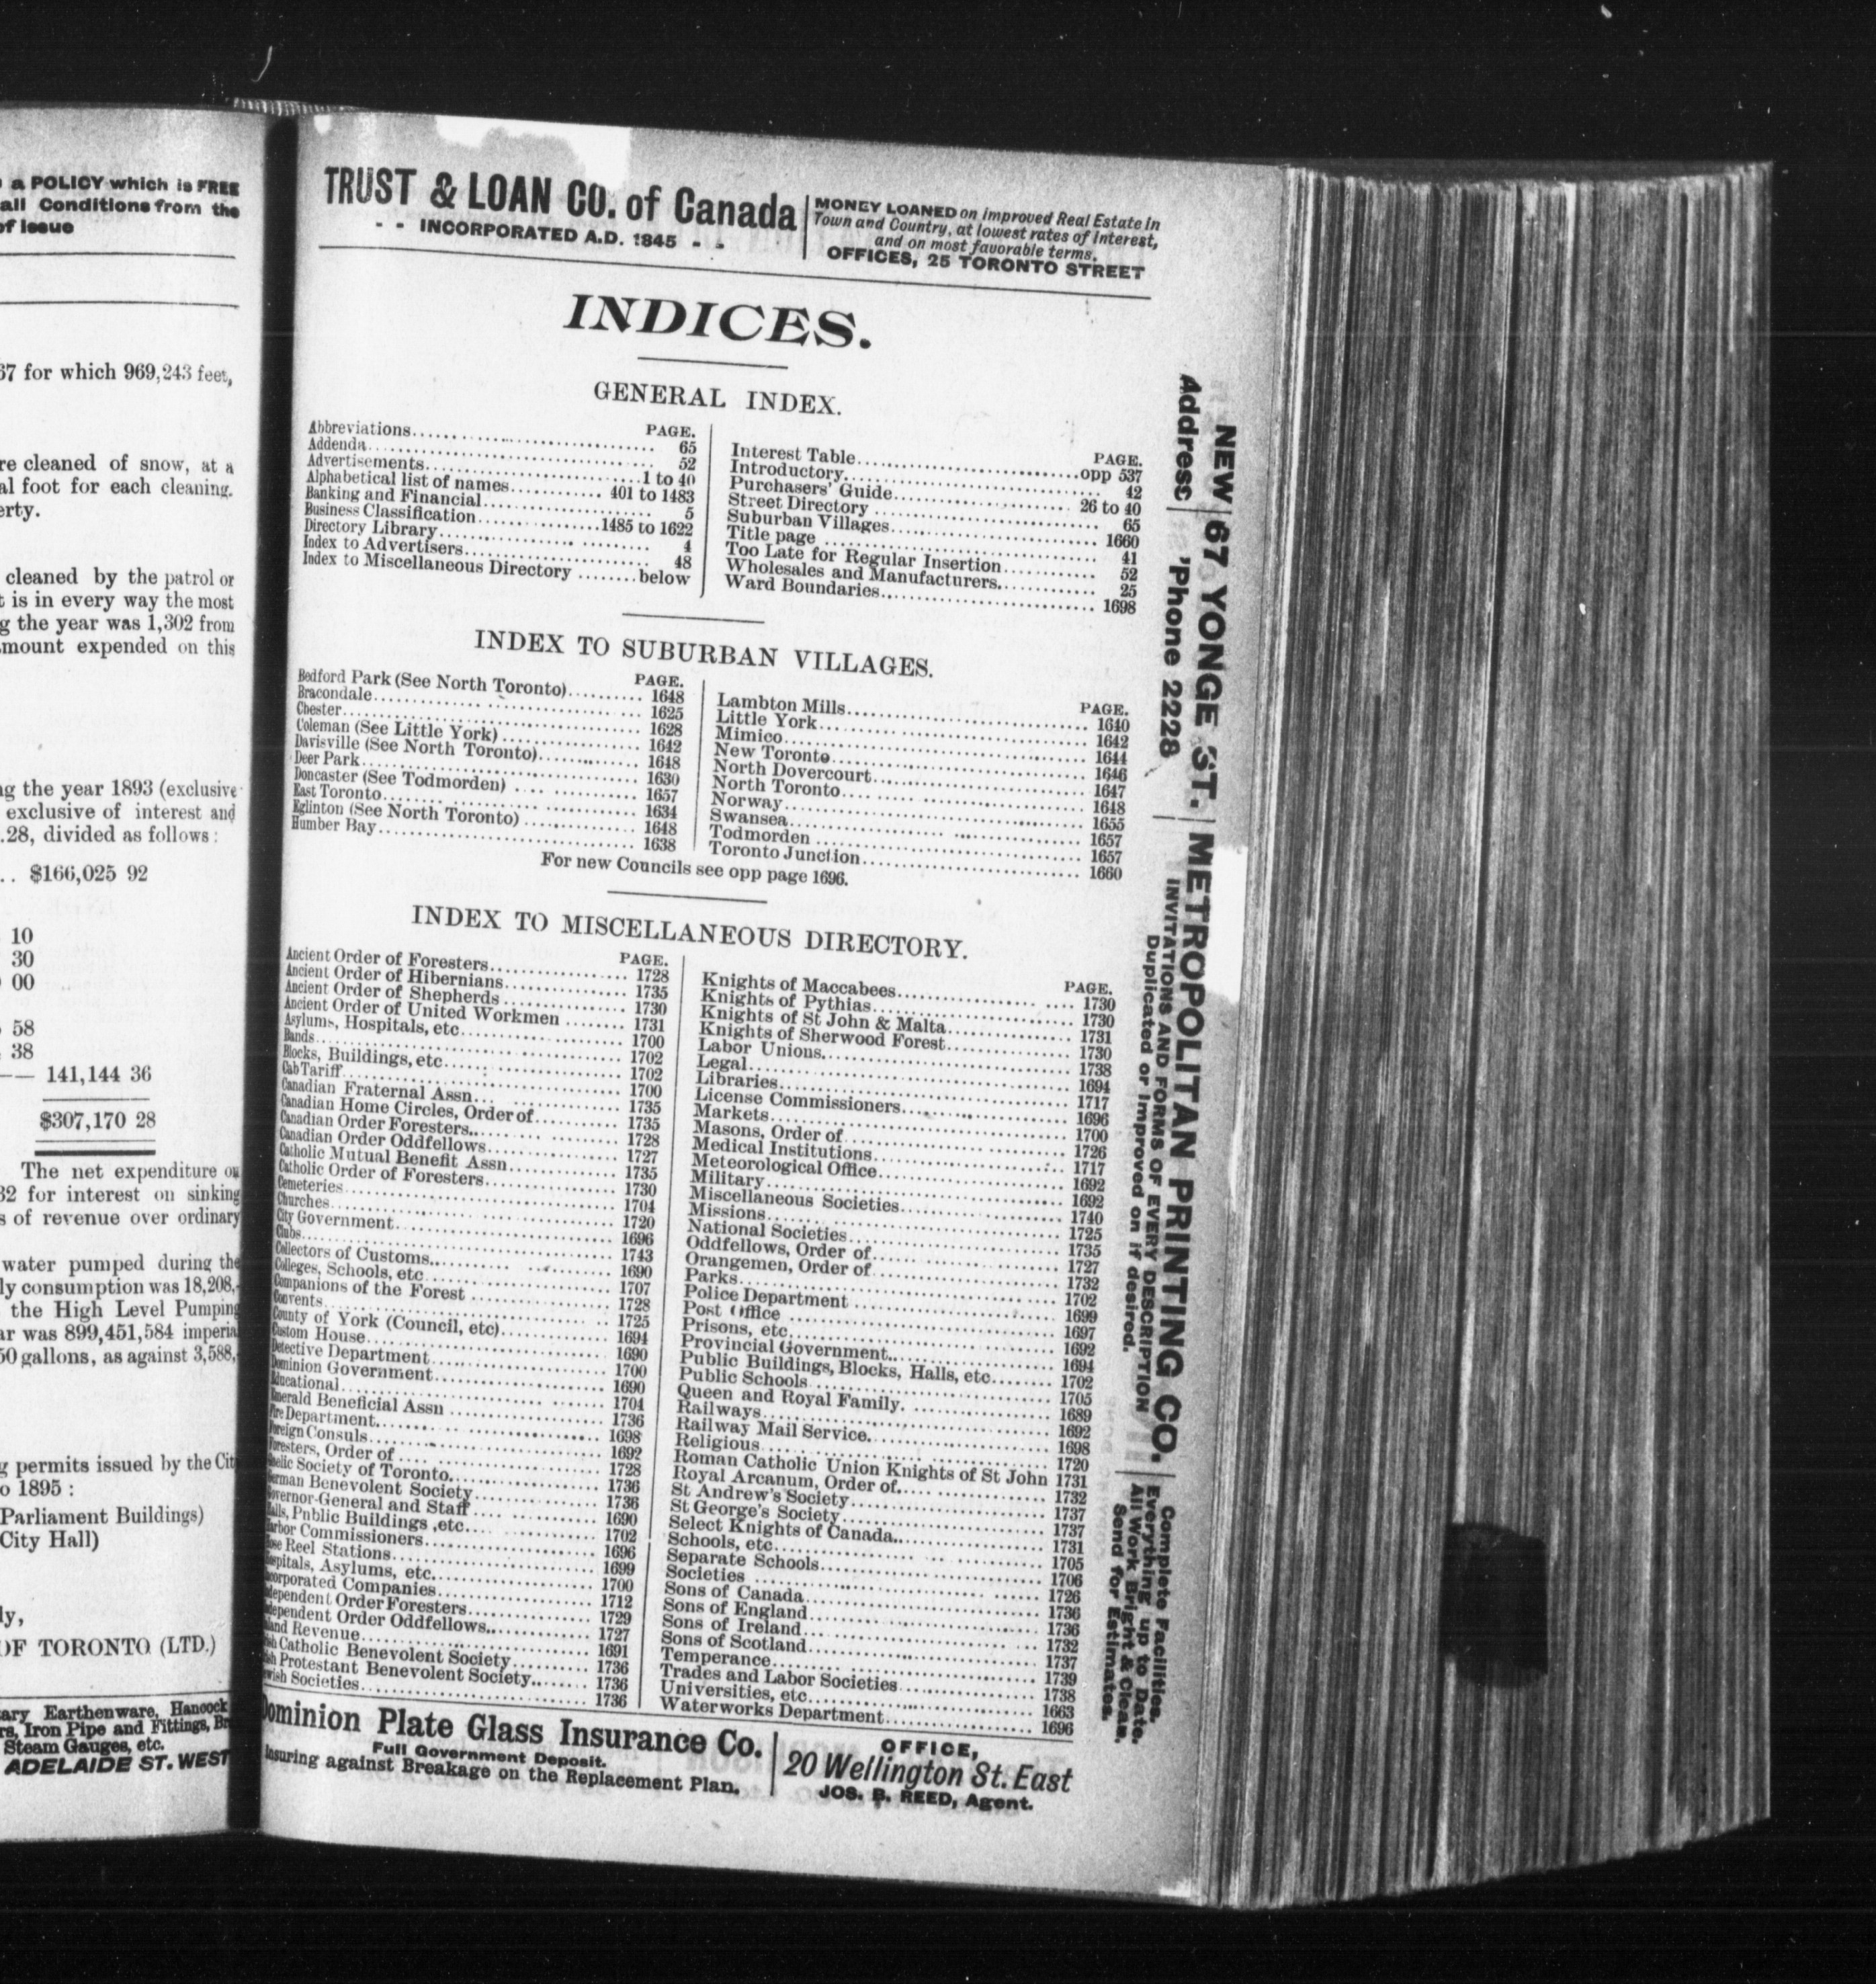 a POLICY which is FREE
all Conditions from the
of issue
67 for which 969,243 feet,
re cleaned of snow, at a
al foot for each cleaning.
erty.
cleaned by the patrol or
t is in every way the most
g the year was 1,302 from
mount expended on this
ng the year 1893 (exclusive
exclusive of interest and
.28, divided as follows:
.. $166,025 92
10
30
00
58
38
141,144 36
$307,170 28
The net expenditure on
32 for interest on sinking
s of revenue over ordinary
water pumped during the
ly consumption was 18,208,
the High Level Pumping
ar was 899,451,584 imperia
50 gallons, as against 3,588,
g permits issued by the Cit
o 1895:
Parliament Buildings)
City Hall)
ly,
OF TORONTO (LTD.)
ary Earthenware, Hancock
rs, Iron Pipe and Fittings, Br
Steam Gauges, etc.
ADELAIDE ST. WEST
TRUST & LOAN CO. of Canada
- - INCORPORATED A.D. 1845 - -
MONEY LOANED on improved Real Estate in
Town and Country, at lowest rates of interest,
and on most favorable terms.
OFFICES, 25 TORONTO STREET
INDICES.
GENERAL INDEX.
PAGE.
Abbreviations 65
Addenda 52
Advertisements 1 to 40
Alphabetical list of names 401 to 1483
Banking and Financial 5
Business Classification 1485 to 1622
Directory Library 4
Index to Advertisers 48
Index to Miscellaneous Directory below
PAGE.
Interest Table opp 537
Introductory 42
Purchasers' Guide 26 to 40
Street Directory 65
Suburban Villages 1660
Title page 41
Too Late for Regular Insertion 52
Wholesales and Manufacturers 25
Ward Boundaries 1698
INDEX TO SUBURBAN VILLAGES.
PAGE.
Bedford Park (See North Toronto) 1648
Bracondale 1625
Chester 1628
Coleman (See Little York) 1642
Davisville (See North Toronto) 1648
Deer Park 1630
Doncaster (See Todmorden) 1657
East Toronto 1634
Eglinton (See North Toronto) 1648
Humber Bay 1638
PAGE.
Lambton Mills 1640
Little York 1642
Mimico 1644
New Toronto 1646
North Dovercourt 1647
North Toronto 1648
Norway 1655
Swansea 1657
Todmorden 1657
Toronto Junction 1660
For new Councils see opp page 1696.
INDEX TO MISCELLANEOUS DIRECTORY.
PAGE.
Ancient Order of Foresters 1728
Ancient Order of Hibernians 1735
Ancient Order of Shepherds 1730
Ancient Order of United Workmen 1731
Asylums, Hospitals, etc 1700
Bands 1702
Blocks, Buildings, etc 1702
Cab Tariff 1700
Canadian Fraternal Assn 1735
Canadian Home Circles, Order of 1735
Canadian Order Foresters 1728
Canadian Order Oddfellows 1727
Catholic Mutual Benefit Assn 1735
Catholic Order of Foresters 1730
Cemeteries 1704
Churches 1720
City Government 1696
Clubs 1743
Collectors of Customs 1690
Colleges, Schools, etc 1707
Companions of the Forest 1728
Convents 1725
County of York (Council, etc) 1694
Custom House 1690
Detective Department 1700
Dominion Government 1690
Educational 1704
Emerald Beneficial Assn 1736
Fire Department 1698
Foreign Consuls 1692
Foresters, Order of 1728
Gaelic Society of Toronto 1736
German Benevolent Society 1736
Governor-General and Staff 1690
Halls, Public Buildings, etc 1702
Harbor Commissioners 1696
Hose Reel Stations 1699
Hospitals, Asylums, etc 1700
Incorporated Companies 1712
Independent Order Foresters 1729
Independent Order Oddfellows 1727
Inland Revenue 1691
Irish Catholic Benevolent Society 1736
Irish Protestant Benevolent Society 1736
Jewish Societies 1736
PAGE.
Knights of Maccabees 1730
Knights of Pythias 1730
Knights of St John & Malta 1731
Knights of Sherwood Forest 1730
Labor Unions 1738
Legal 1694
Libraries 1717
License Commissioners 1696
Markets 1700
Masons, Order of 1726
Medical Institutions 1717
Meteorological Office 1692
Military 1692
Miscellaneous Societies 1740
Missions 1725
National Societies 1735
Oddfellows, Order of 1727
Orangemen, Order of 1732
Parks 1702
Police Department 1699
Post Office 1697
Prisons, etc 1692
Provincial Government 1694
Public Buildings, Blocks, Halls, etc 1702
Public Schools 1705
Queen and Royal Family 1689
Railways 1692
Railway Mail Service 1698
Religious 1720
Roman Catholic Union Knights of St John 1731
Royal Arcanum, Order of 1732
St Andrew's Society 1737
St George's Society 1737
Select Knights of Canada 1731
Schools, etc 1705
Separate Schools 1706
Societies 1726
Sons of Canada 1736
Sons of England 1736
Sons of Ireland 1732
Sons of Scotland 1737
Temperance 1739
Trades and Labor Societies 1738
Universities, etc 1663
Waterworks Department 1696
Dominion Plate Glass Insurance Co.
Full Government Deposit.
Insuring against Breakage on the Replacement Plan.
OFFICE,
20 Wellington St. East
JOS. B. REED, Agent.
NEW Address
67 YONGE ST.
'Phone 2228
METROPOLITAN PRINTING CO.
INVITATIONS AND FORMS OF EVERY DESCRIPTION
Duplicated or Improved on if desired.
Complete Facilities.
Everything up to Date.
All Work Bright & Clean.
Send for Estimates.